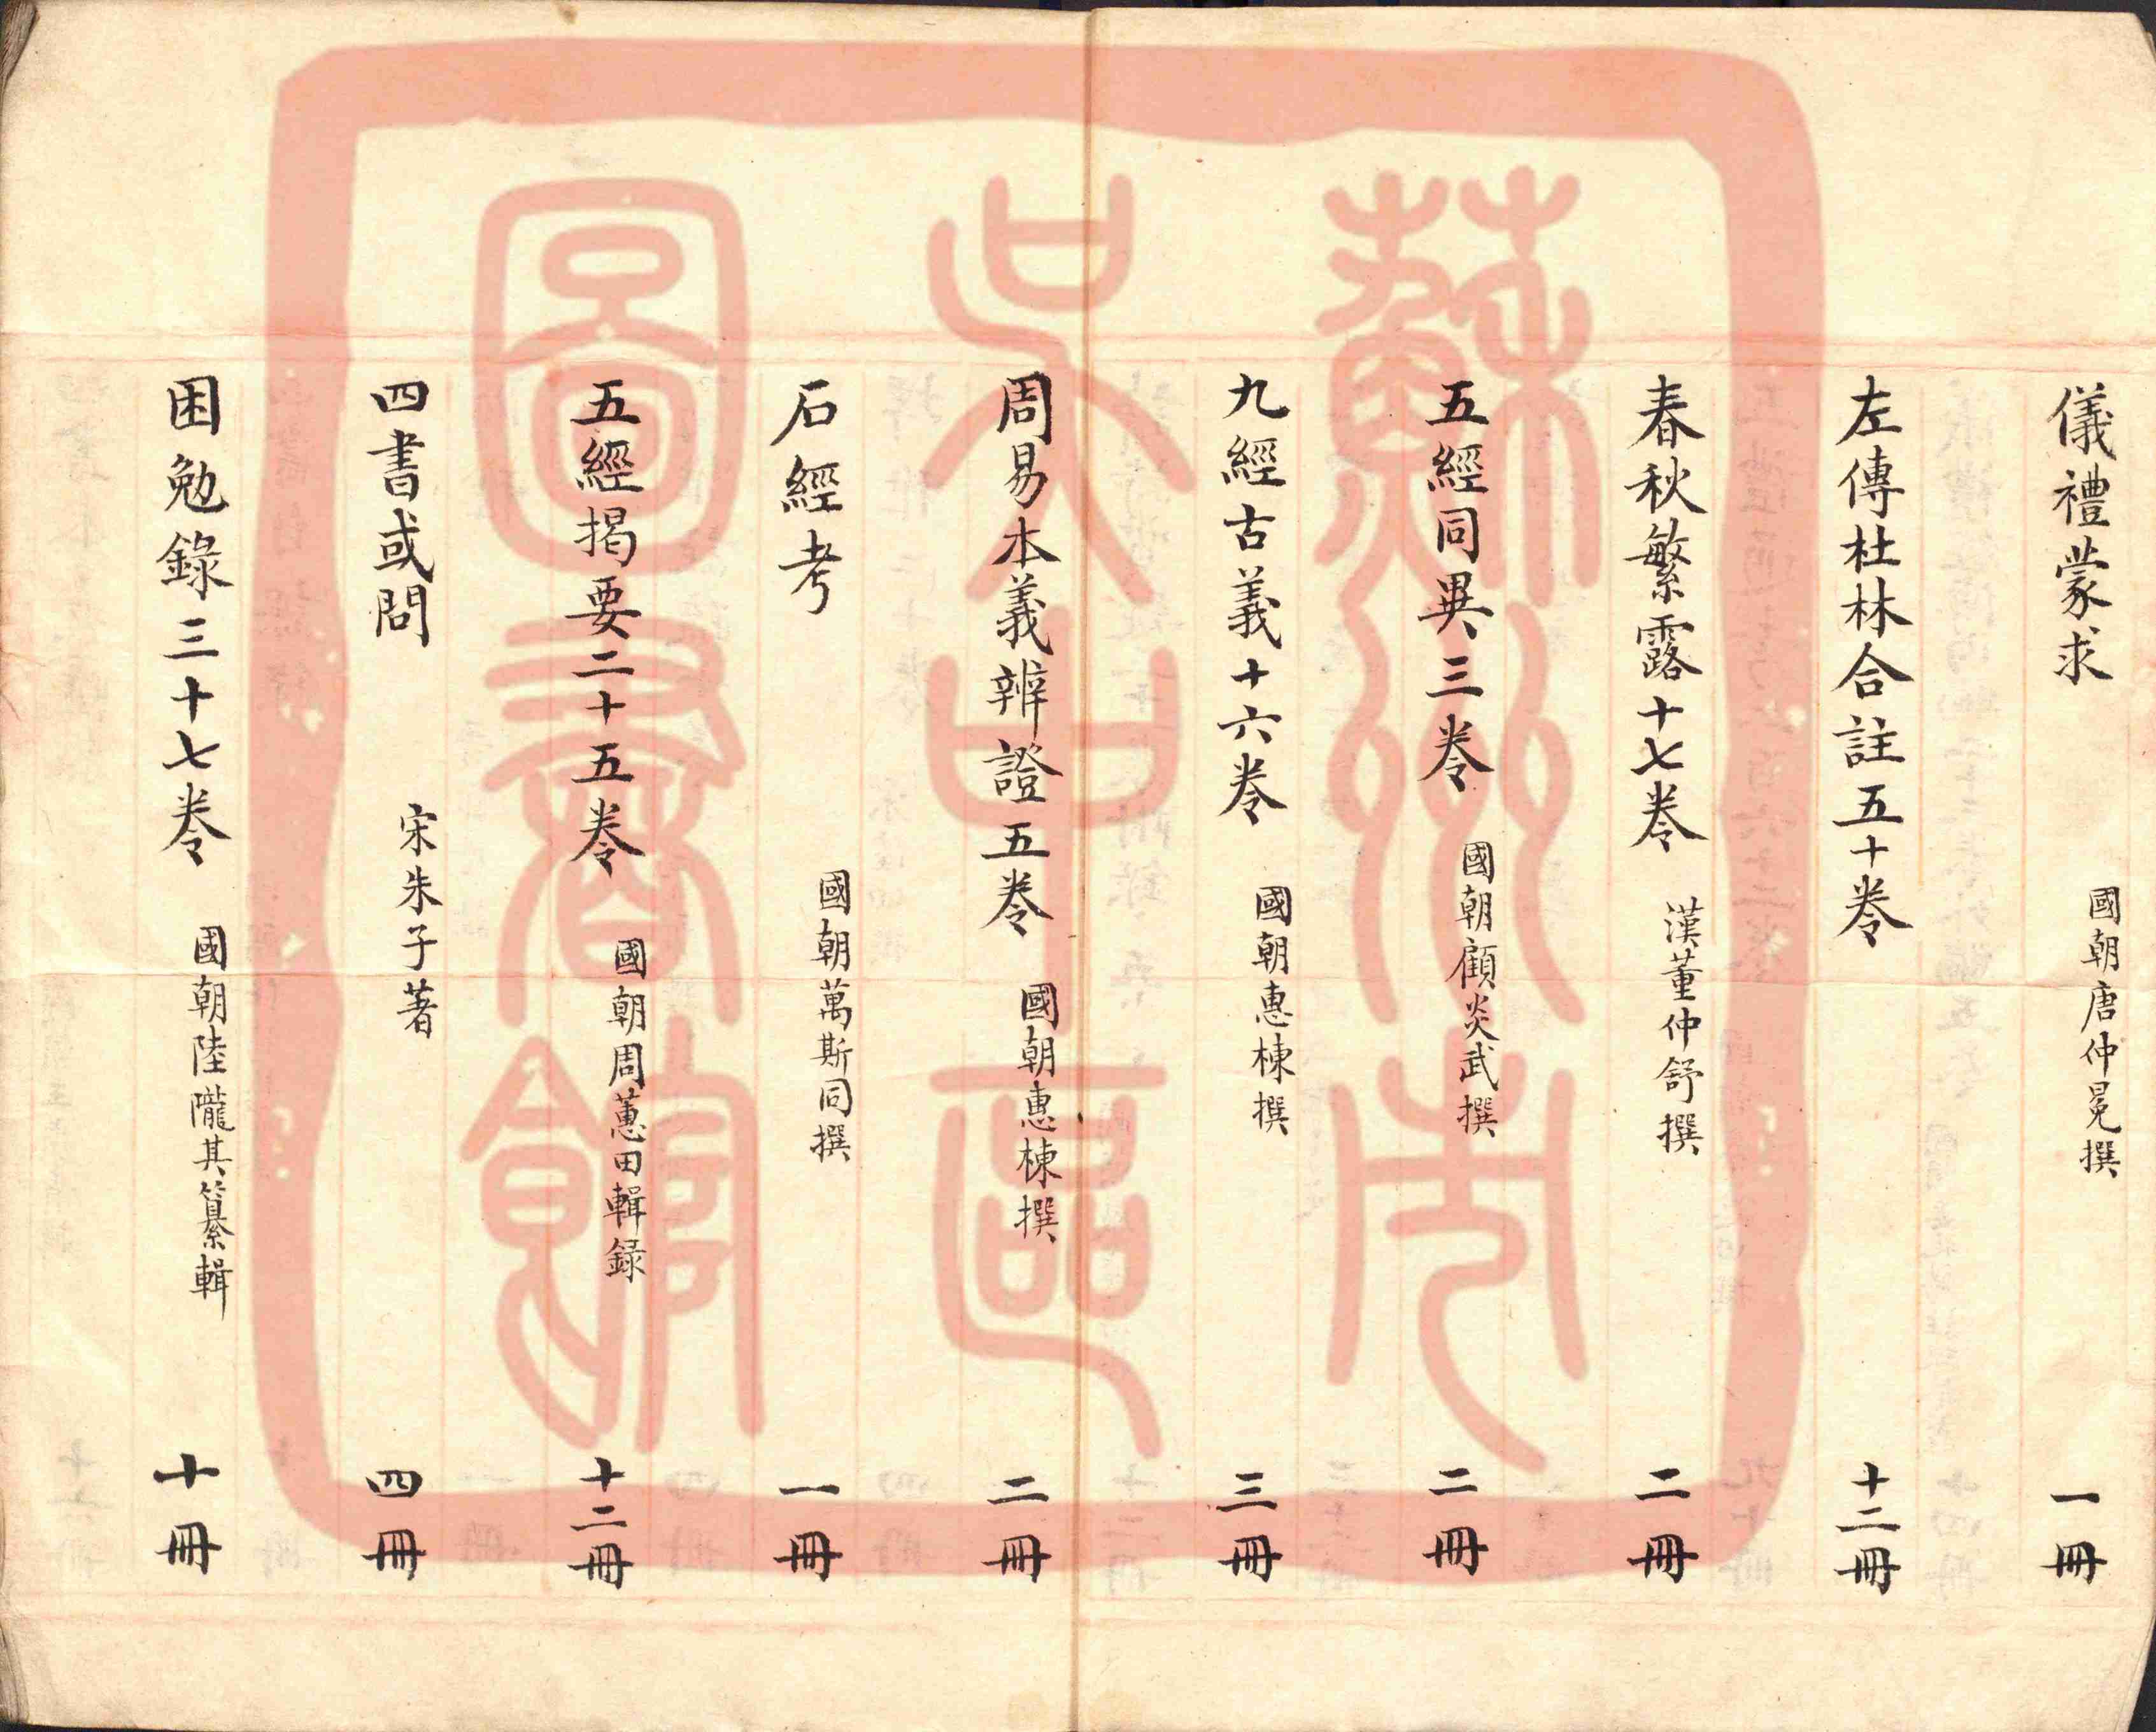 儀禮蒙求 國朝唐仲冕撰 一冊
左傳杜林合註五十卷 十二冊
春秋繁露十七卷 漢董仲舒撰 二冊
五經同異三卷 國朝顧炎武撰 二冊
九經古義十六卷 國朝惠棟撰 三冊
周易本義辨證五卷 國朝惠棟撰 二冊
石經考 國朝萬斯同撰 一冊
五經揭要二十五卷 國朝周蕙田輯錄 十二冊
四書或問 宋朱子著 四冊
困勉錄三十七卷 國朝陸隴其纂輯 十冊
蘇州市
吳中區
圖書館